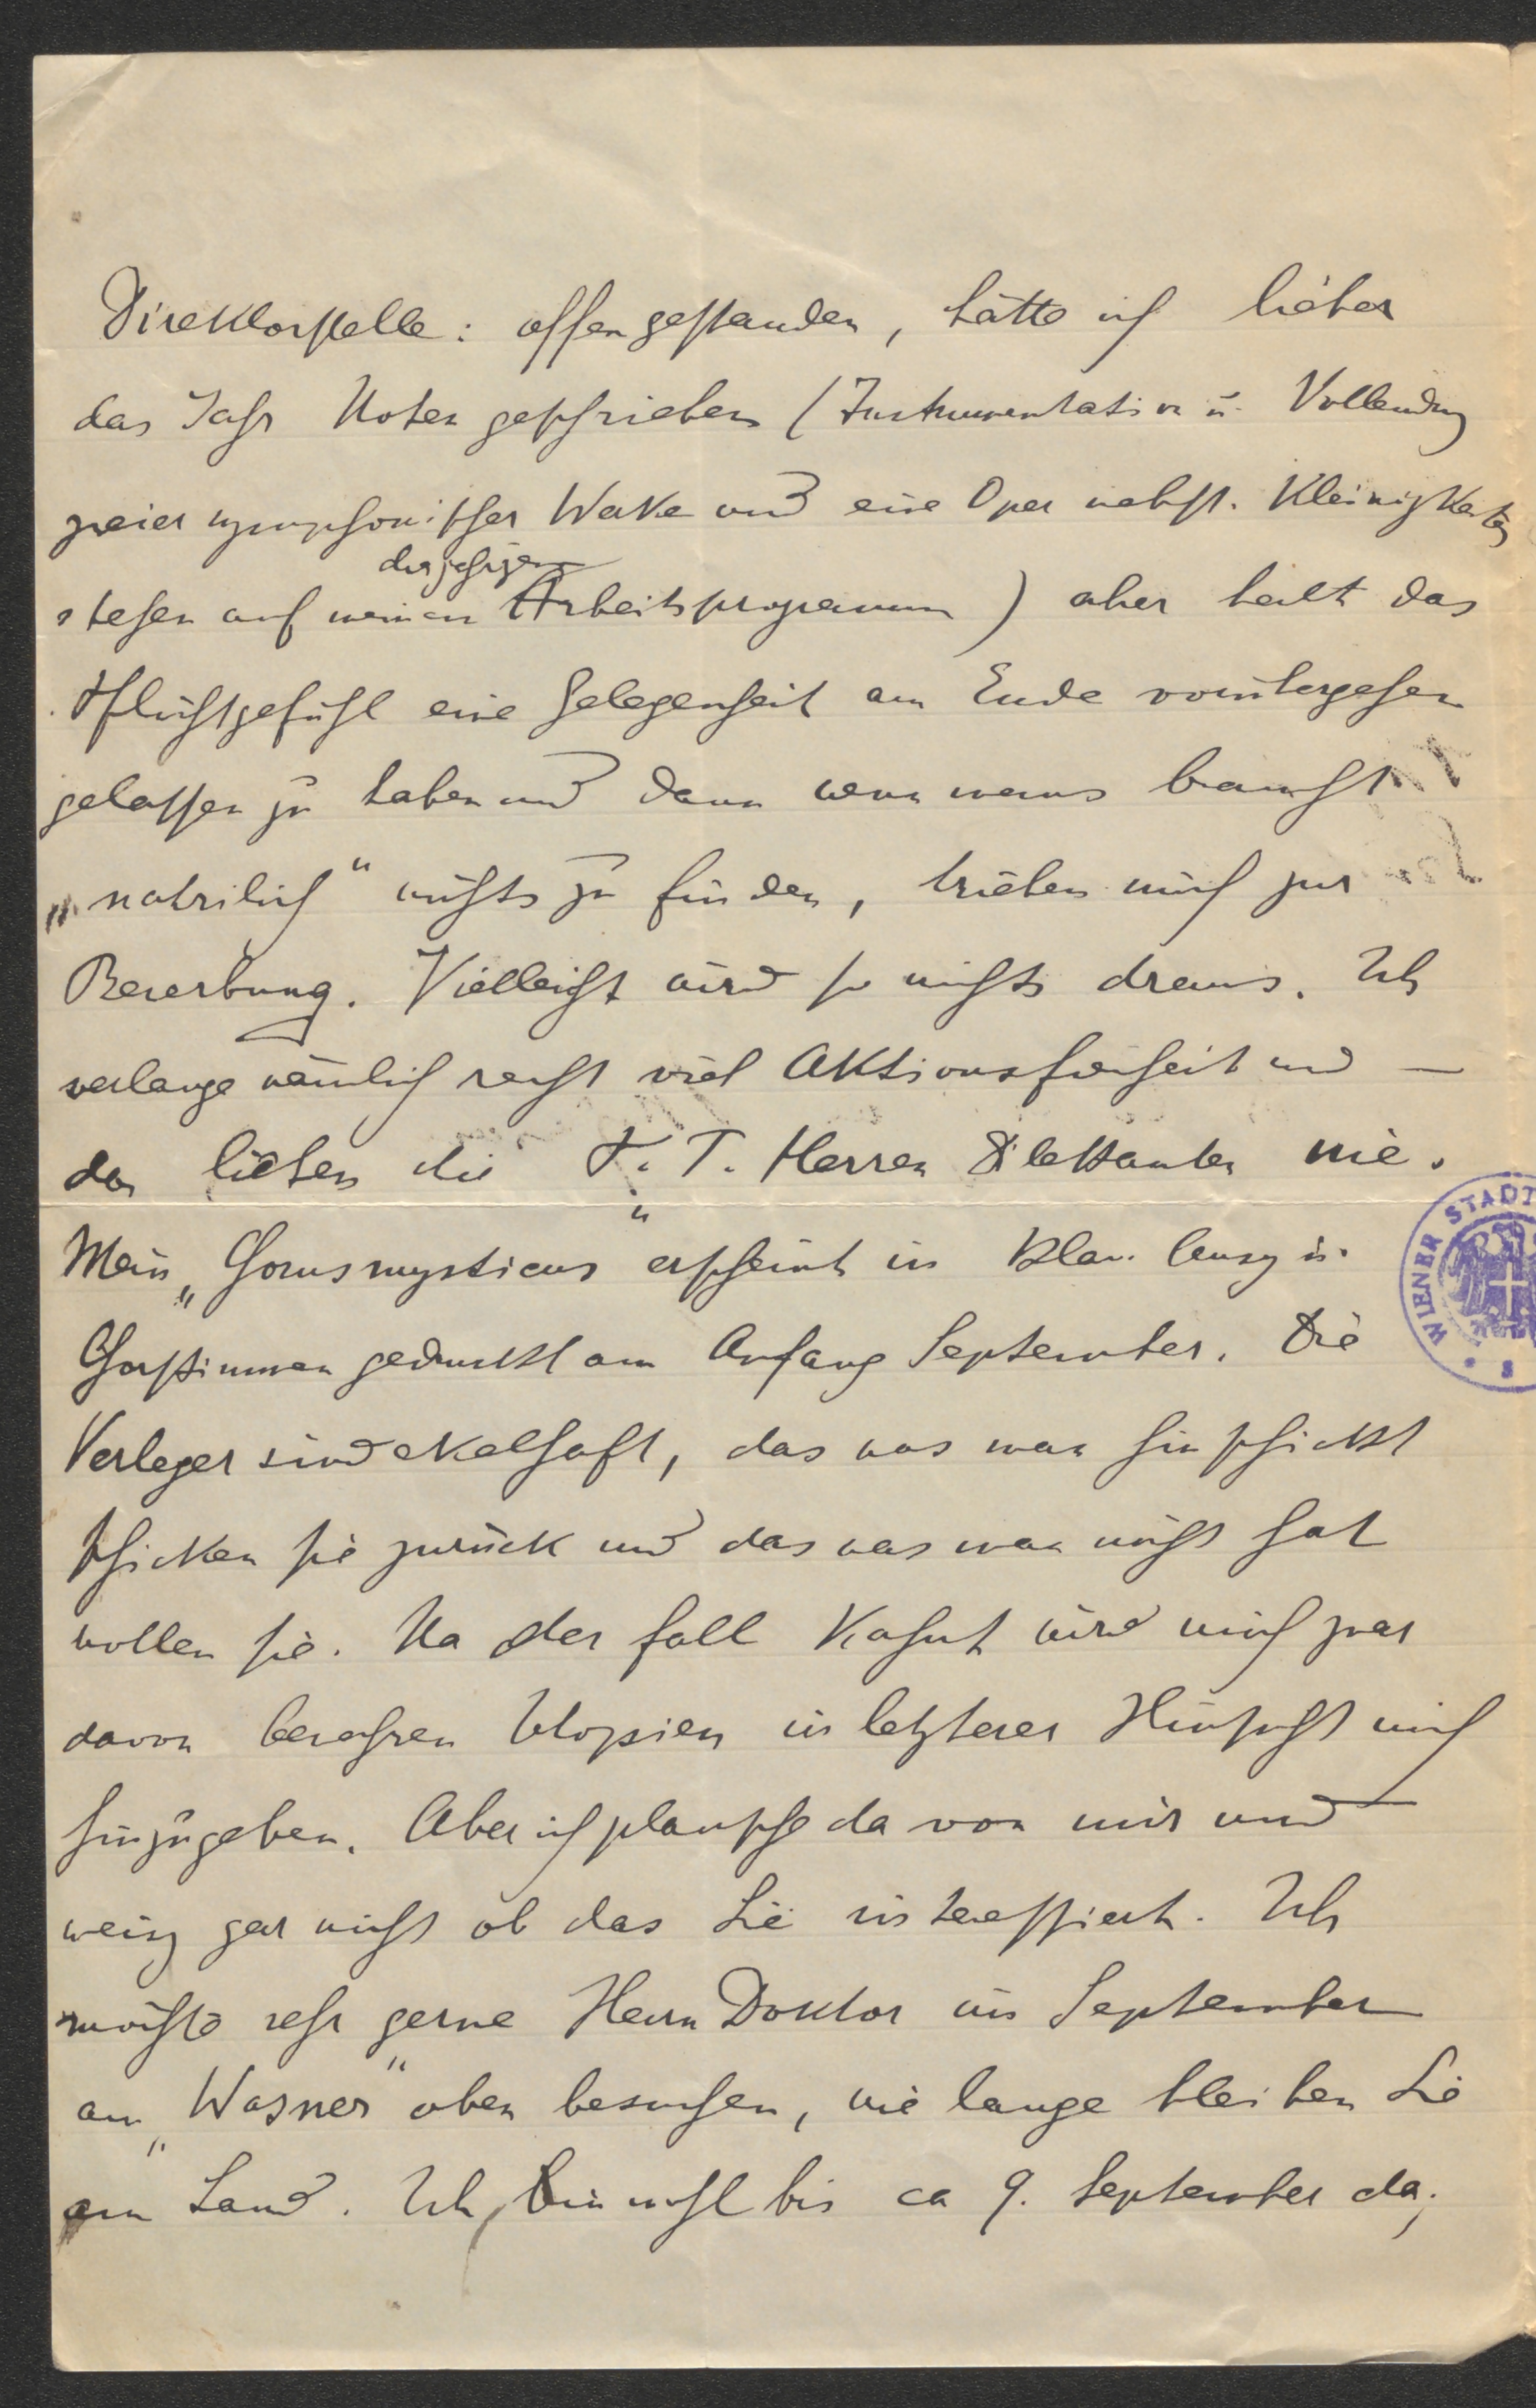 Direktorstelle: offen gestanden, hätte ich lieber
das Jahr Noten geschrieben (Instrumentation u. Vollendung
zweier symphonischer Werke und eine Oper nebst. Kleinigkeiten
diesjährigen
stehen auf meinem Arbeitsprogramm) aber halt das
Pflichtgefühl eine Gelegenheit am Ende vorübergehen
gelassen zu haben und dann wenn mans braucht
„natürlich" nichts zu finden, trieben mich zur
Bewerbung. Vielleicht wird so nichts draus. Ich
verlange nämlich recht viel Aktionsfreiheit und —
das lieben die P. T. Herren Dilettanten nie.
Mein „Chorus mysticus" erscheint in Klav. Auszg u.
Chorstimmen gedruckt am Anfang September. Die
Verleger sind ekelhaft, das was man hinschickt
schicken sie zurück und das was man nicht hat
wollen sie. Na der Fall wird mich zwar
davon bewahren Utopien in letzterer Hinsicht mich
hinzugeben. Aber ich plausche da von mir und
weisz gar nicht ob das Sie interessiert. Ich
möchte sehr gerne Herrn Doktor im September
am „Wasner" oben besuchen, wie lange bleiben Sie
am Land. Ich bin wohl bis ca 9. September da;
WIENER STADT